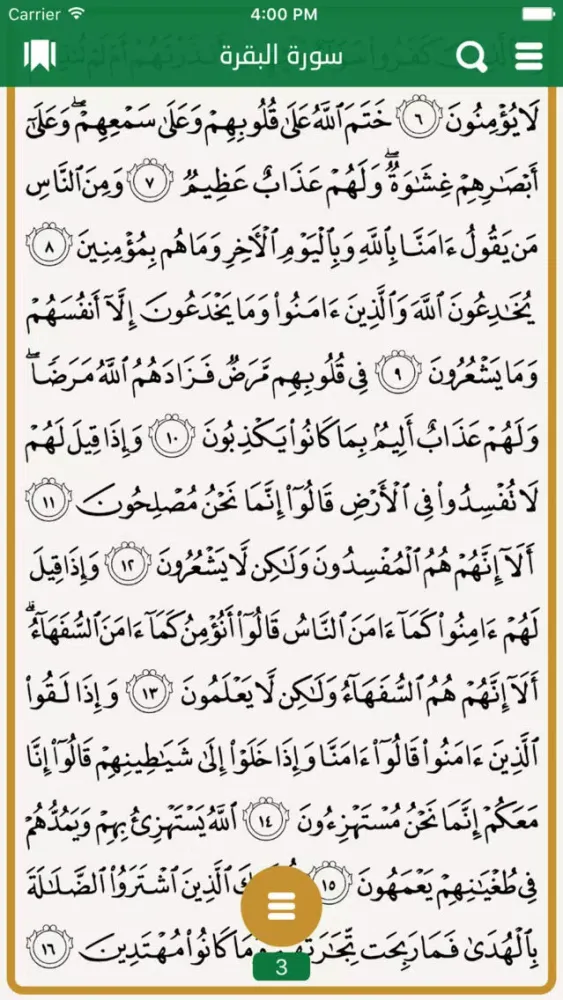 Carrier 4:00 PM
سورة البقرة
لَا يُؤْمِنُونَ ٦ خَتَمَ ٱللَّهُ عَلَىٰ قُلُوبِهِمْ وَعَلَىٰ سَمْعِهِمْۖ وَعَلَىٰٓ
أَبْصَٰرِهِمْ غِشَٰوَةٌۖ وَلَهُمْ عَذَابٌ عَظِيمٌ ٧ وَمِنَ ٱلنَّاسِ
مَن يَقُولُ ءَامَنَّا بِٱللَّهِ وَبِٱلْيَوْمِ ٱلْأَخِرِ وَمَا هُم بِمُؤْمِنِينَ ٨
يُخَٰدِعُونَ ٱللَّهَ وَٱلَّذِينَ ءَامَنُوا۟ وَمَا يَخْدَعُونَ إِلَّآ أَنفُسَهُمْ
وَمَا يَشْعُرُونَ ٩ فِى قُلُوبِهِم مَّرَضٌ فَزَادَهُمُ ٱللَّهُ مَرَضًاۖ
وَلَهُمْ عَذَابٌ أَلِيمٌۢ بِمَا كَانُوا۟ يَكْذِبُونَ ١٠ وَإِذَا قِيلَ لَهُمْ
لَا تُفْسِدُوا۟ فِى ٱلْأَرْضِ قَالُوٓا۟ إِنَّمَا نَحْنُ مُصْلِحُونَ ١١
أَلَآ إِنَّهُمْ هُمُ ٱلْمُفْسِدُونَ وَلَٰكِن لَّا يَشْعُرُونَ ١٢ وَإِذَا قِيلَ
لَهُمْ ءَامِنُوا۟ كَمَآ ءَامَنَ ٱلنَّاسُ قَالُوٓا۟ أَنُؤْمِنُ كَمَآ ءَامَنَ ٱلسُّفَهَآءُۗ
أَلَآ إِنَّهُمْ هُمُ ٱلسُّفَهَآءُ وَلَٰكِن لَّا يَعْلَمُونَ ١٣ وَإِذَا لَقُوا۟
ٱلَّذِينَ ءَامَنُوا۟ قَالُوٓا۟ ءَامَنَّا وَإِذَا خَلَوْا۟ إِلَىٰ شَيَٰطِينِهِمْ قَالُوٓا۟ إِنَّا
مَعَكُمْ إِنَّمَا نَحْنُ مُسْتَهْزِءُونَ ١٤ ٱللَّهُ يَسْتَهْزِئُ بِهِمْ وَيَمُدُّهُمْ
فِى طُغْيَٰنِهِمْ يَعْمَهُونَ ١٥ ٱلَّذِينَ ٱشْتَرَوُا۟ ٱلضَّلَٰلَةَ
بِٱلْهُدَىٰ فَمَا رَبِحَت وَمَا كَانُوا۟ مُهْتَدِينَ ١٦
3